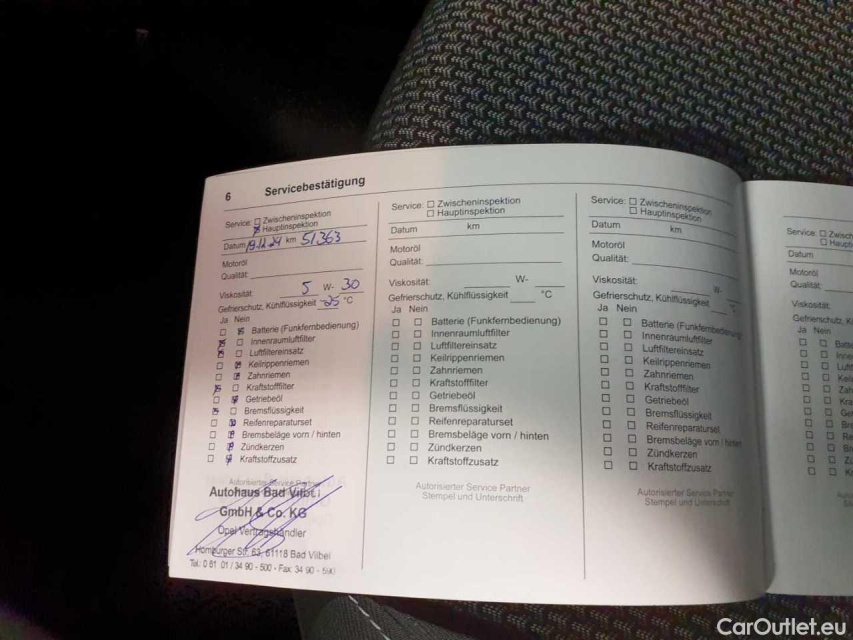 6 Servicebestätigung
Service: Zwischeninspektion
Hauptinspektion
Datum 19.12.24 km 51.363
Motoröl
Qualität:
Viskosität: 5 W- 30
Gefrierschutz, Kühlflüssigkeit -25 °C
Ja Nein
Batterie (Funkfernbedienung)
Innenraumluftfilter
Luftfiltereinsatz
Keilrippenriemen
Zahnriemen
Kraftstofffilter
Getriebeöl
Bremsflüssigkeit
Reifenreparaturset
Bremsbeläge vorn / hinten
Zündkerzen
Kraftstoffzusatz
Autorisierter Service Partner
Autohaus Bad Vilbel
GmbH & Co. KG
Opel Vertragshändler
Homburger Str. 63, 61118 Bad Vilbel
Tel.: 0 61 01 / 34 90 - 500 - Fax: 34 90 - 590
Service: Zwischeninspektion
Hauptinspektion
Datum km
Motoröl
Qualität:
Viskosität: W-
Gefrierschutz, Kühlflüssigkeit °C
Ja Nein
Batterie (Funkfernbedienung)
Innenraumluftfilter
Luftfiltereinsatz
Keilrippenriemen
Zahnriemen
Kraftstofffilter
Getriebeöl
Bremsflüssigkeit
Reifenreparaturset
Bremsbeläge vorn / hinten
Zündkerzen
Kraftstoffzusatz
Autorisierter Service Partner
Stempel und Unterschrift
Service: Zwischeninspektion
Hauptinspektion
Datum km
Motoröl
Qualität:
Viskosität: W-
Gefrierschutz, Kühlflüssigkeit °C
Ja Nein
Batterie (Funkfernbedienung)
Innenraumluftfilter
Luftfiltereinsatz
Keilrippenriemen
Zahnriemen
Kraftstofffilter
Getriebeöl
Bremsflüssigkeit
Reifenreparaturset
Bremsbeläge vorn / hinten
Zündkerzen
Kraftstoffzusatz
Autorisierter Service Partner
Stempel und Unterschrift
Service:
Datum
Motoröl
Qualität:
Viskosität:
Gefrierschutz,
Ja Nein
CarOutlet.eu